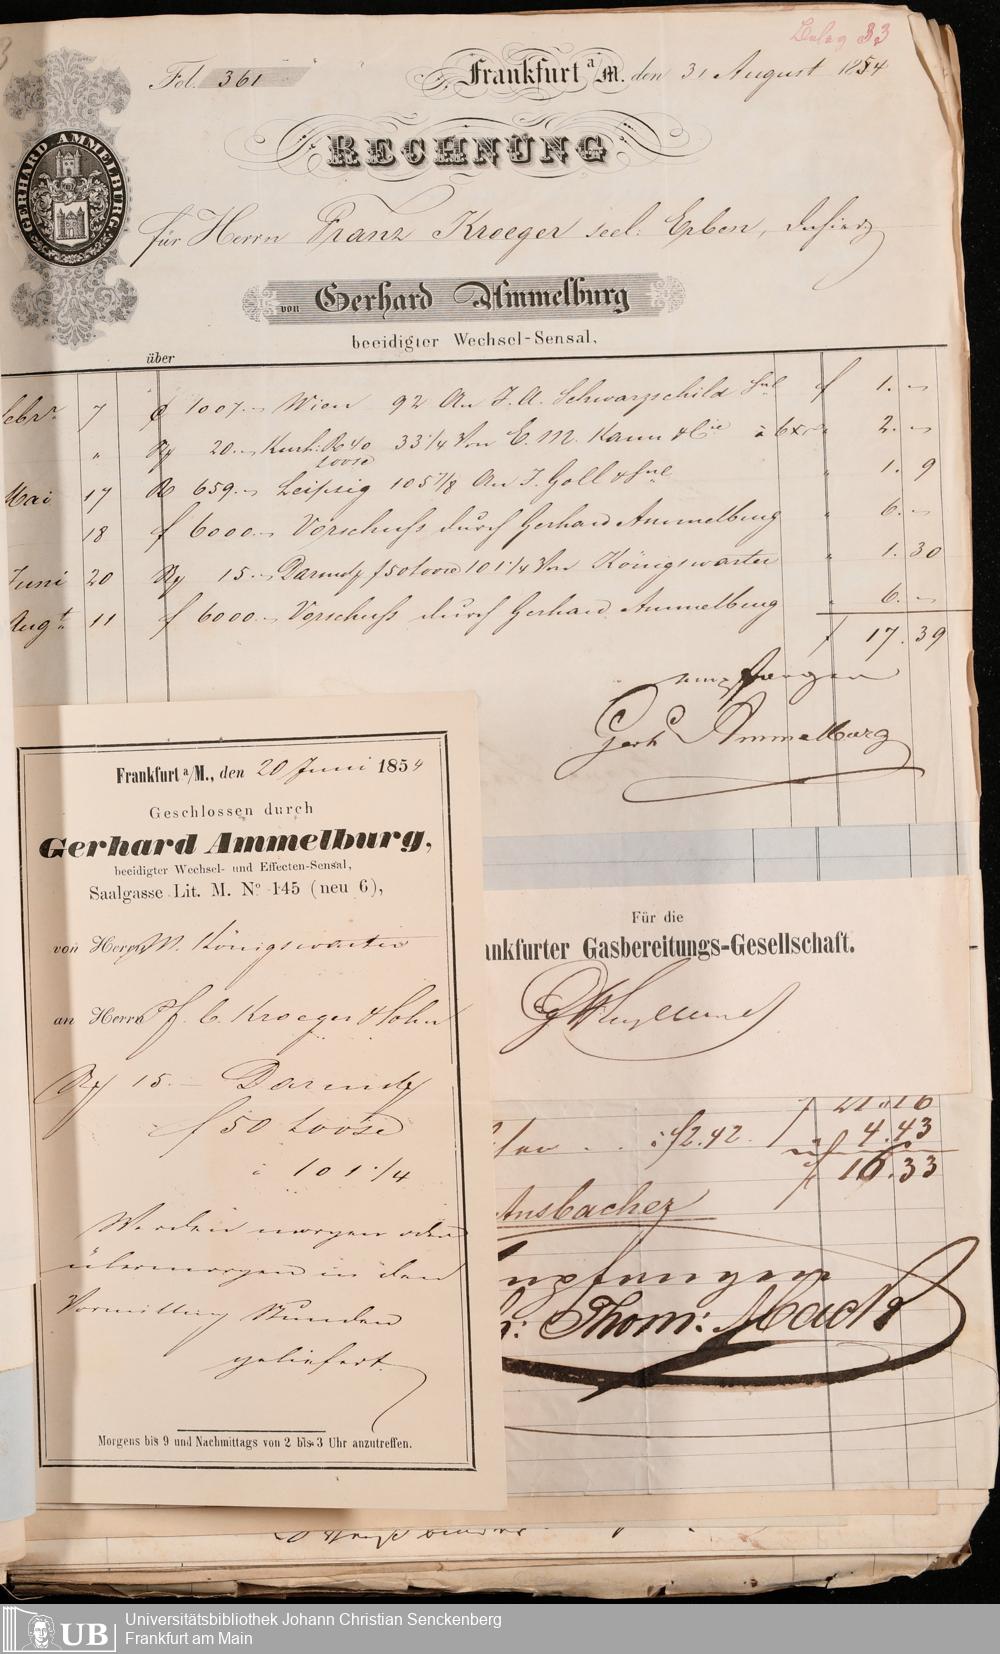 Beleg 33
Fol. 361
Frankfurt a/M. den 31 August 1854
GERHARD AMMELBURG.
RECHNUNG
für Herrn Franz Kroeger seel: Erben,
von Gerhard Ammelburg
beeidigter Wechsel-Sensal,
über
Febr. 7 1007. Wien 92 An J. A. Schwarzschild f 1. -
" 20. 33 1/4 Von E. M. Kann & Cie à 6 xr " 2. -
Mai 17 659. Leipzig 105 7/8 An J. Goll & " 1. 9
18 f 6000. Vorschuß durch Gerhard Ammelburg " 6. -
Juni 20 15. f 50 Loose 101 1/4 Von Königswarter " 1. 30
Augt. 11 f 6000. Vorschuß durch Gerhard Ammelburg " 6. -
f 17. 39
empfangen
Gerh Ammelburg
Frankfurt a/M., den 20 Juni 1854
Geschlossen durch
Gerhard Ammelburg,
beeidigter Wechsel- und Effecten-Sensal,
Saalgasse Lit. M. No 145 (neu 6),
von Herrn M. Königswarter
an Herrn C. Kroeger & Sohn
15.
f 50 Loose
à 101 1/4
Werden morgen oder
übermorgen in den
Vormittag Stunden
geliefert.
Morgens bis 9 und Nachmittags von 2 bis 3 Uhr anzutreffen.
Für die
ankfurter Gasbereitungs-Gesellschaft.
f 21.16
à f 2.42. " 4.43
f 16.33
Ansbacher
Thom: Mack
Universitätsbibliothek Johann Christian Senckenberg
Frankfurt am Main
UB